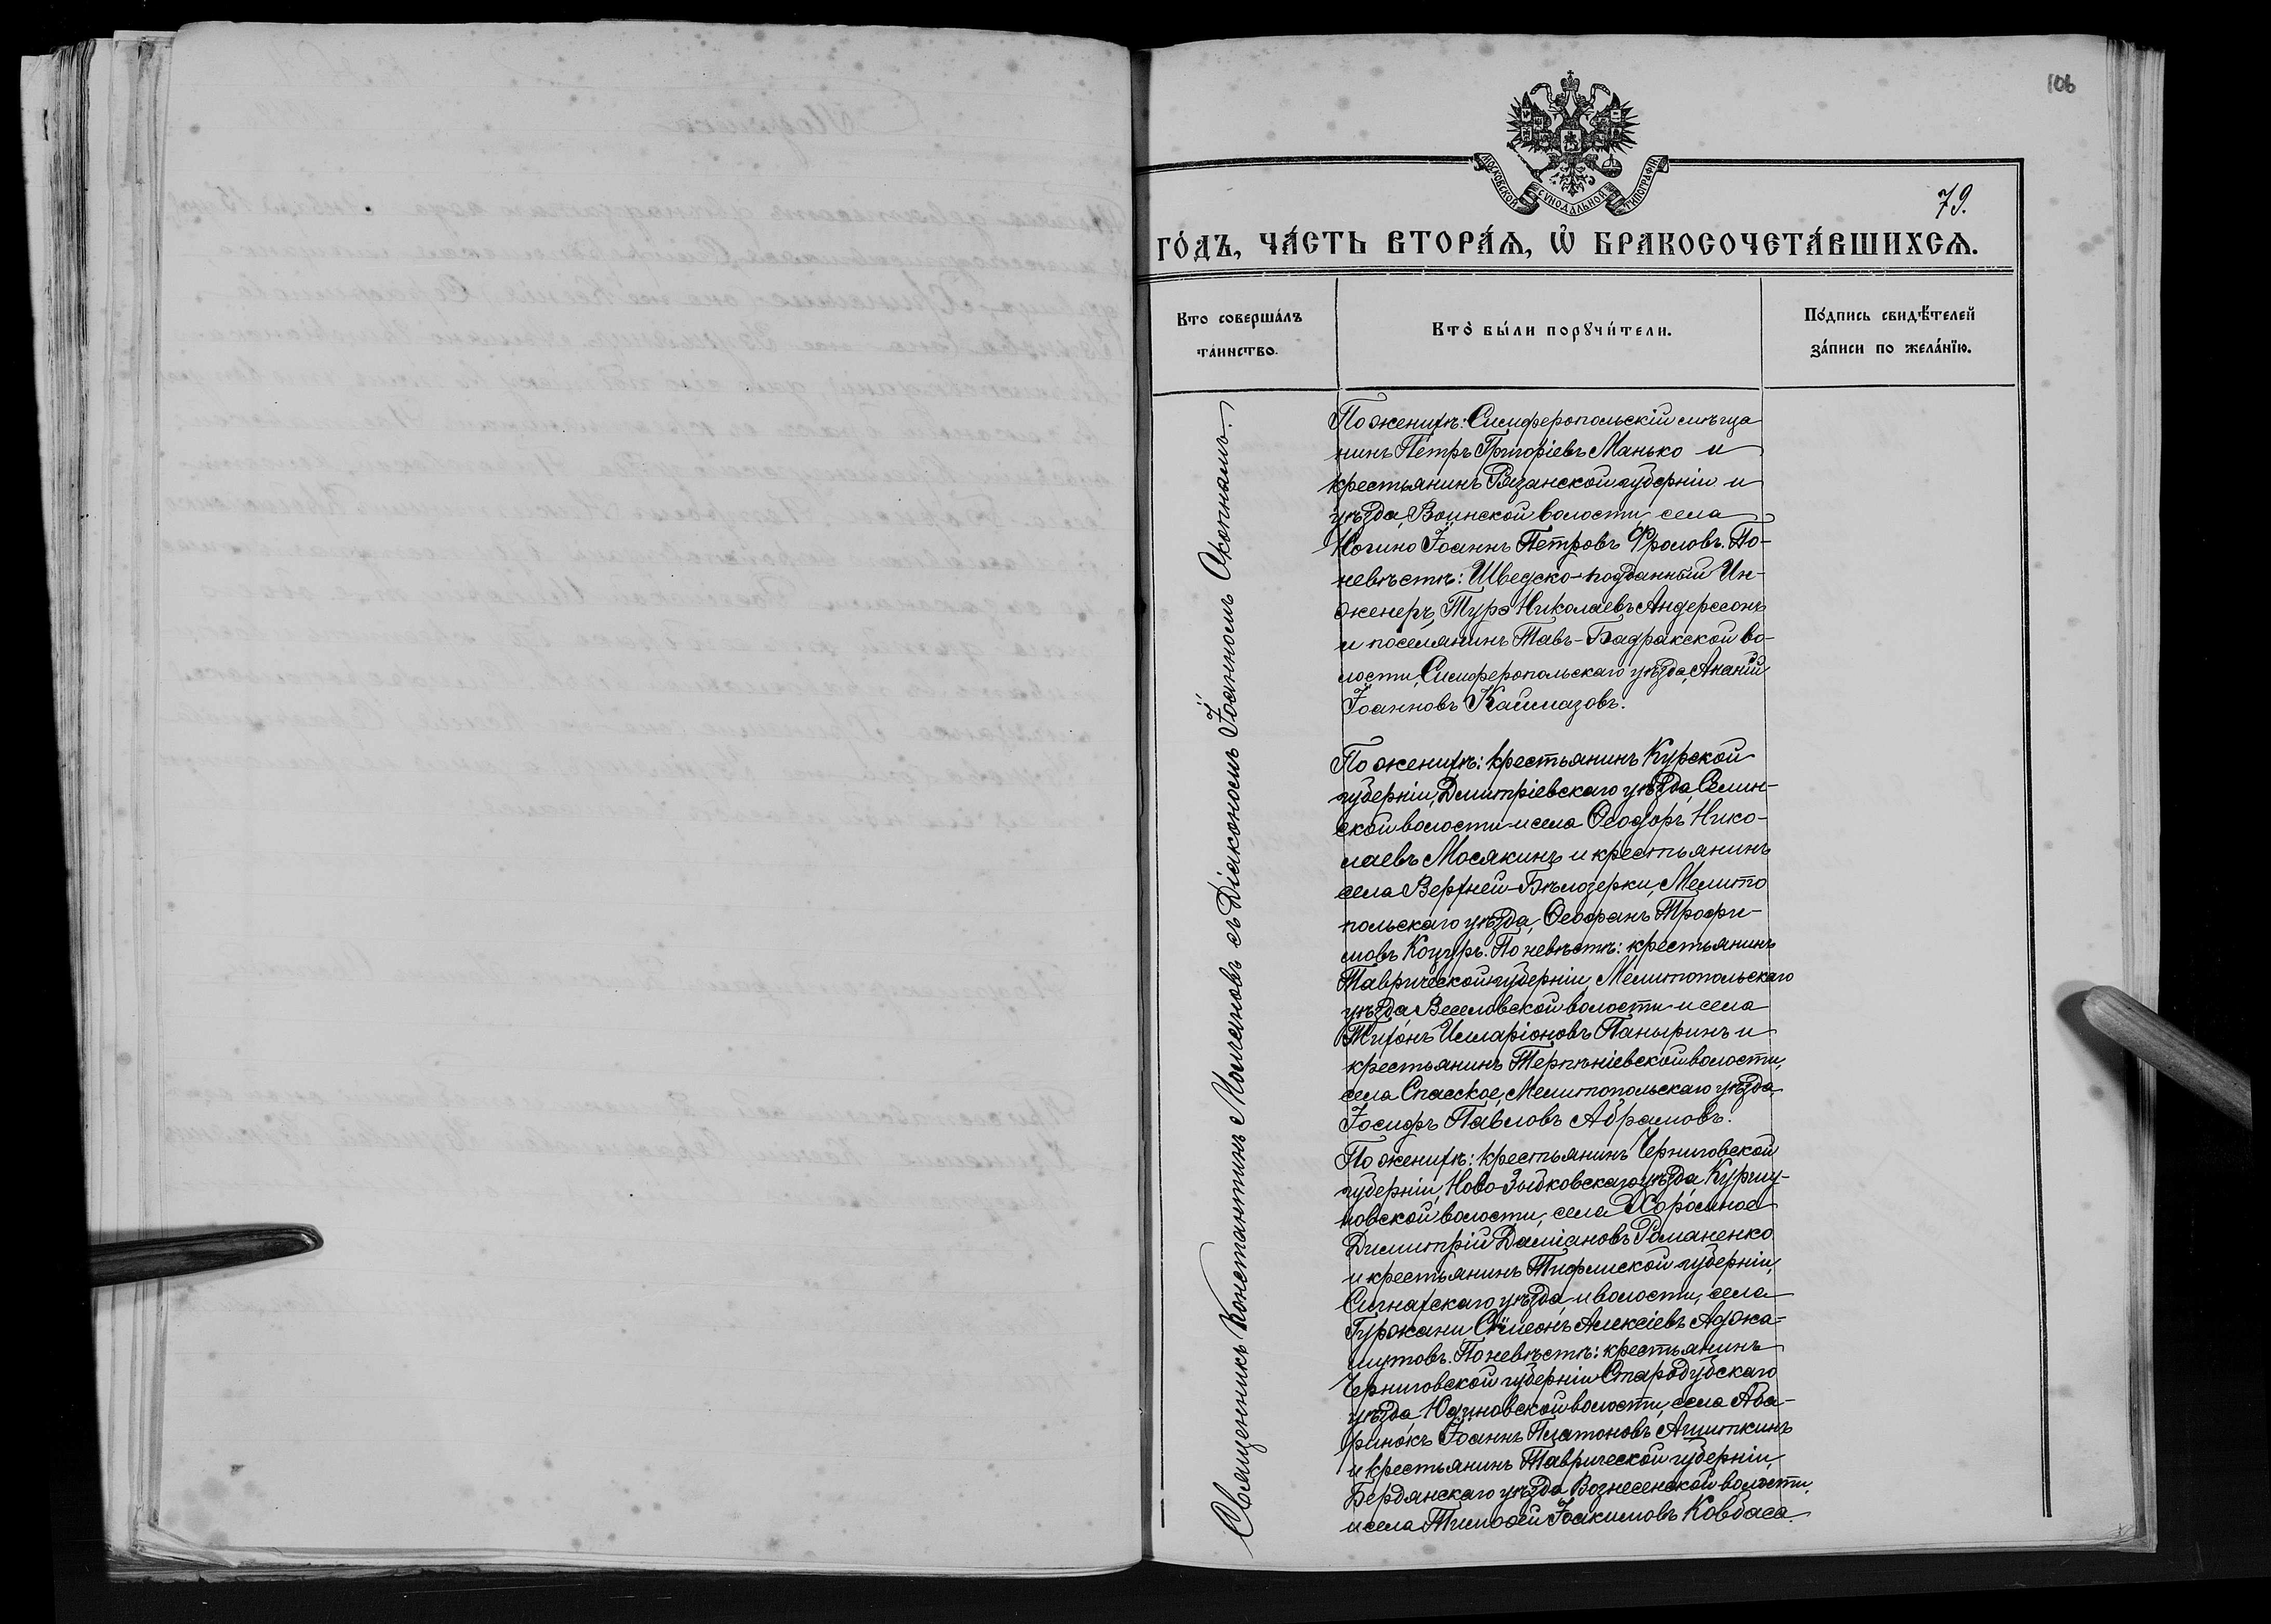 106
МОСКОВСКОЙ СѴНОДАЛЬНОЙ ТИПОГРАФІИ
79.
ГО́ДЪ, ЧА́СТЬ ВТОРА́Ѧ, Ѡ҆ БРАКОСОЧЕТА́ВШИХСѦ.
Кто соверша́лъ
та́инство.
Кто̀ бы́ли порꙋчи́тели.
По́дпись свидѣ́телей
за́писи по жела́нїю.
Священникъ Константинъ Молчановъ съ Діакономъ Іоанномъ
По женихѣ: Симферопольскій мѣща
нинъ Петръ Григоріевъ Манько и
крестьянинъ Рязанской губерніи и
уѣзда, Воинской волости, села
Ногино Іоаннъ Петровъ Фроловъ. По-
невѣстѣ: Шведско-подданный Ин-
женеръ, Турэ Николаевъ Андерссонъ
и поселянинъ Тавъ-Бадракской во-
лости, Симферопольскаго уѣзда, Ананій
Іоанновъ Каймазовъ.
По женихѣ: крестьянинъ Курской
губерніи, Дмитріевскаго уѣзда, Селин-
ской волости и села Ѳеодоръ Нико-
лаевъ Мосякинъ и крестьянинъ
села Верхней-Бѣлозерки, Мелито
польскаго уѣзда, Ѳеофанъ Трофи-
мовъ Коцуръ. По невѣстѣ: крестьянинъ
Таврической губерніи, Мелитопольскаго
уѣзда, Веселовской волости и села
Тихонъ Илларіоновъ Паныринъ и
крестьянинъ Терпѣніевской волости,
села Спасское, Мелитопольскаго уѣзда,
Іосифъ Павловъ Абрамовъ.
По женихѣ: крестьянинъ Черниговской
губерніи, Ново-Зыбковскаго уѣзда,
новской волости, села Хоромное
Димитрій Даміановъ Романенко
и крестьянинъ Тифлиской губерніи,
Сигнахскаго уѣзда и волости, села
Гурджани Сѵмеонъ Алексіевъ Аджа-
мутовъ. По невѣстѣ: крестьянинъ
Черниговской губерніи Стародубскаго
уѣзда, Юдиновской волости, села
Іоаннъ Платоновъ
и крестьянинъ Таврической губерніи,
Бердянскаго уѣзда Вознесенской волости,
и села Тимоѳей Іоакимовъ Ковбаса.